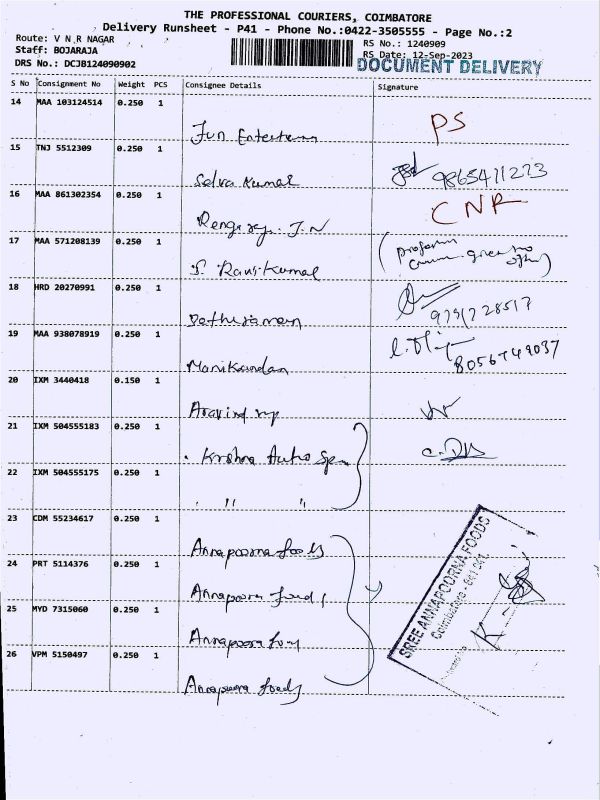 THE PROFESSIONAL COURIERS, COIMBATORE
Delivery Runsheet - P41 - Phone No.:0422-3505555 - Page No.:2
Route: V N R NAGAR
RS No.: 1240909
Staff: BOJARAJA
RS Date: 12-Sep-2023
DRS No.: DCJB124090902
DOCUMENT DELIVERY
S No Consignment No Weight PCS Consignee Details Signature
14 MAA 103124514 0.250 1
PS
Fun
15 TNJ 5512309 0.250 1
Selva Kumal
9865411223
16 MAA 861302354 0.250 1
CNR
J. N
17 MAA 571208139 0.250 1
18 HRD 20270991 0.250 1
9791728517
19 MAA 938078919 0.250 1
Manikandan
8056749037
20 IXM 3440418 0.150 1
Aravind
21 IXM 504555183 0.250 1
Krishna Auto
22 IXM 504555175 0.250 1
" "
23 CDM 55234617 0.250 1
Annapoorna foods
24 PRT 5114376 0.250 1
Annapoorna foods
25 MYD 7315060 0.250 1
Annapoorna
26 VPM 5150497 0.250 1
Annapoorna foods
SREE ANNAPOORNA FOODS
Coimbatore - 641 041